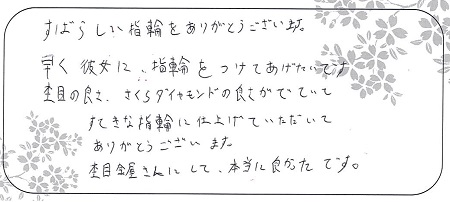 すばらしい指輪をありがとうございます。
早く彼女に、指輪をつけてあげたいです
杢目の良さ、さくらダイヤモンドの良さがでていて
すてきな指輪に仕上げていただいて
ありがとうございます。
杢目金屋さんにして、本当に良かったです。